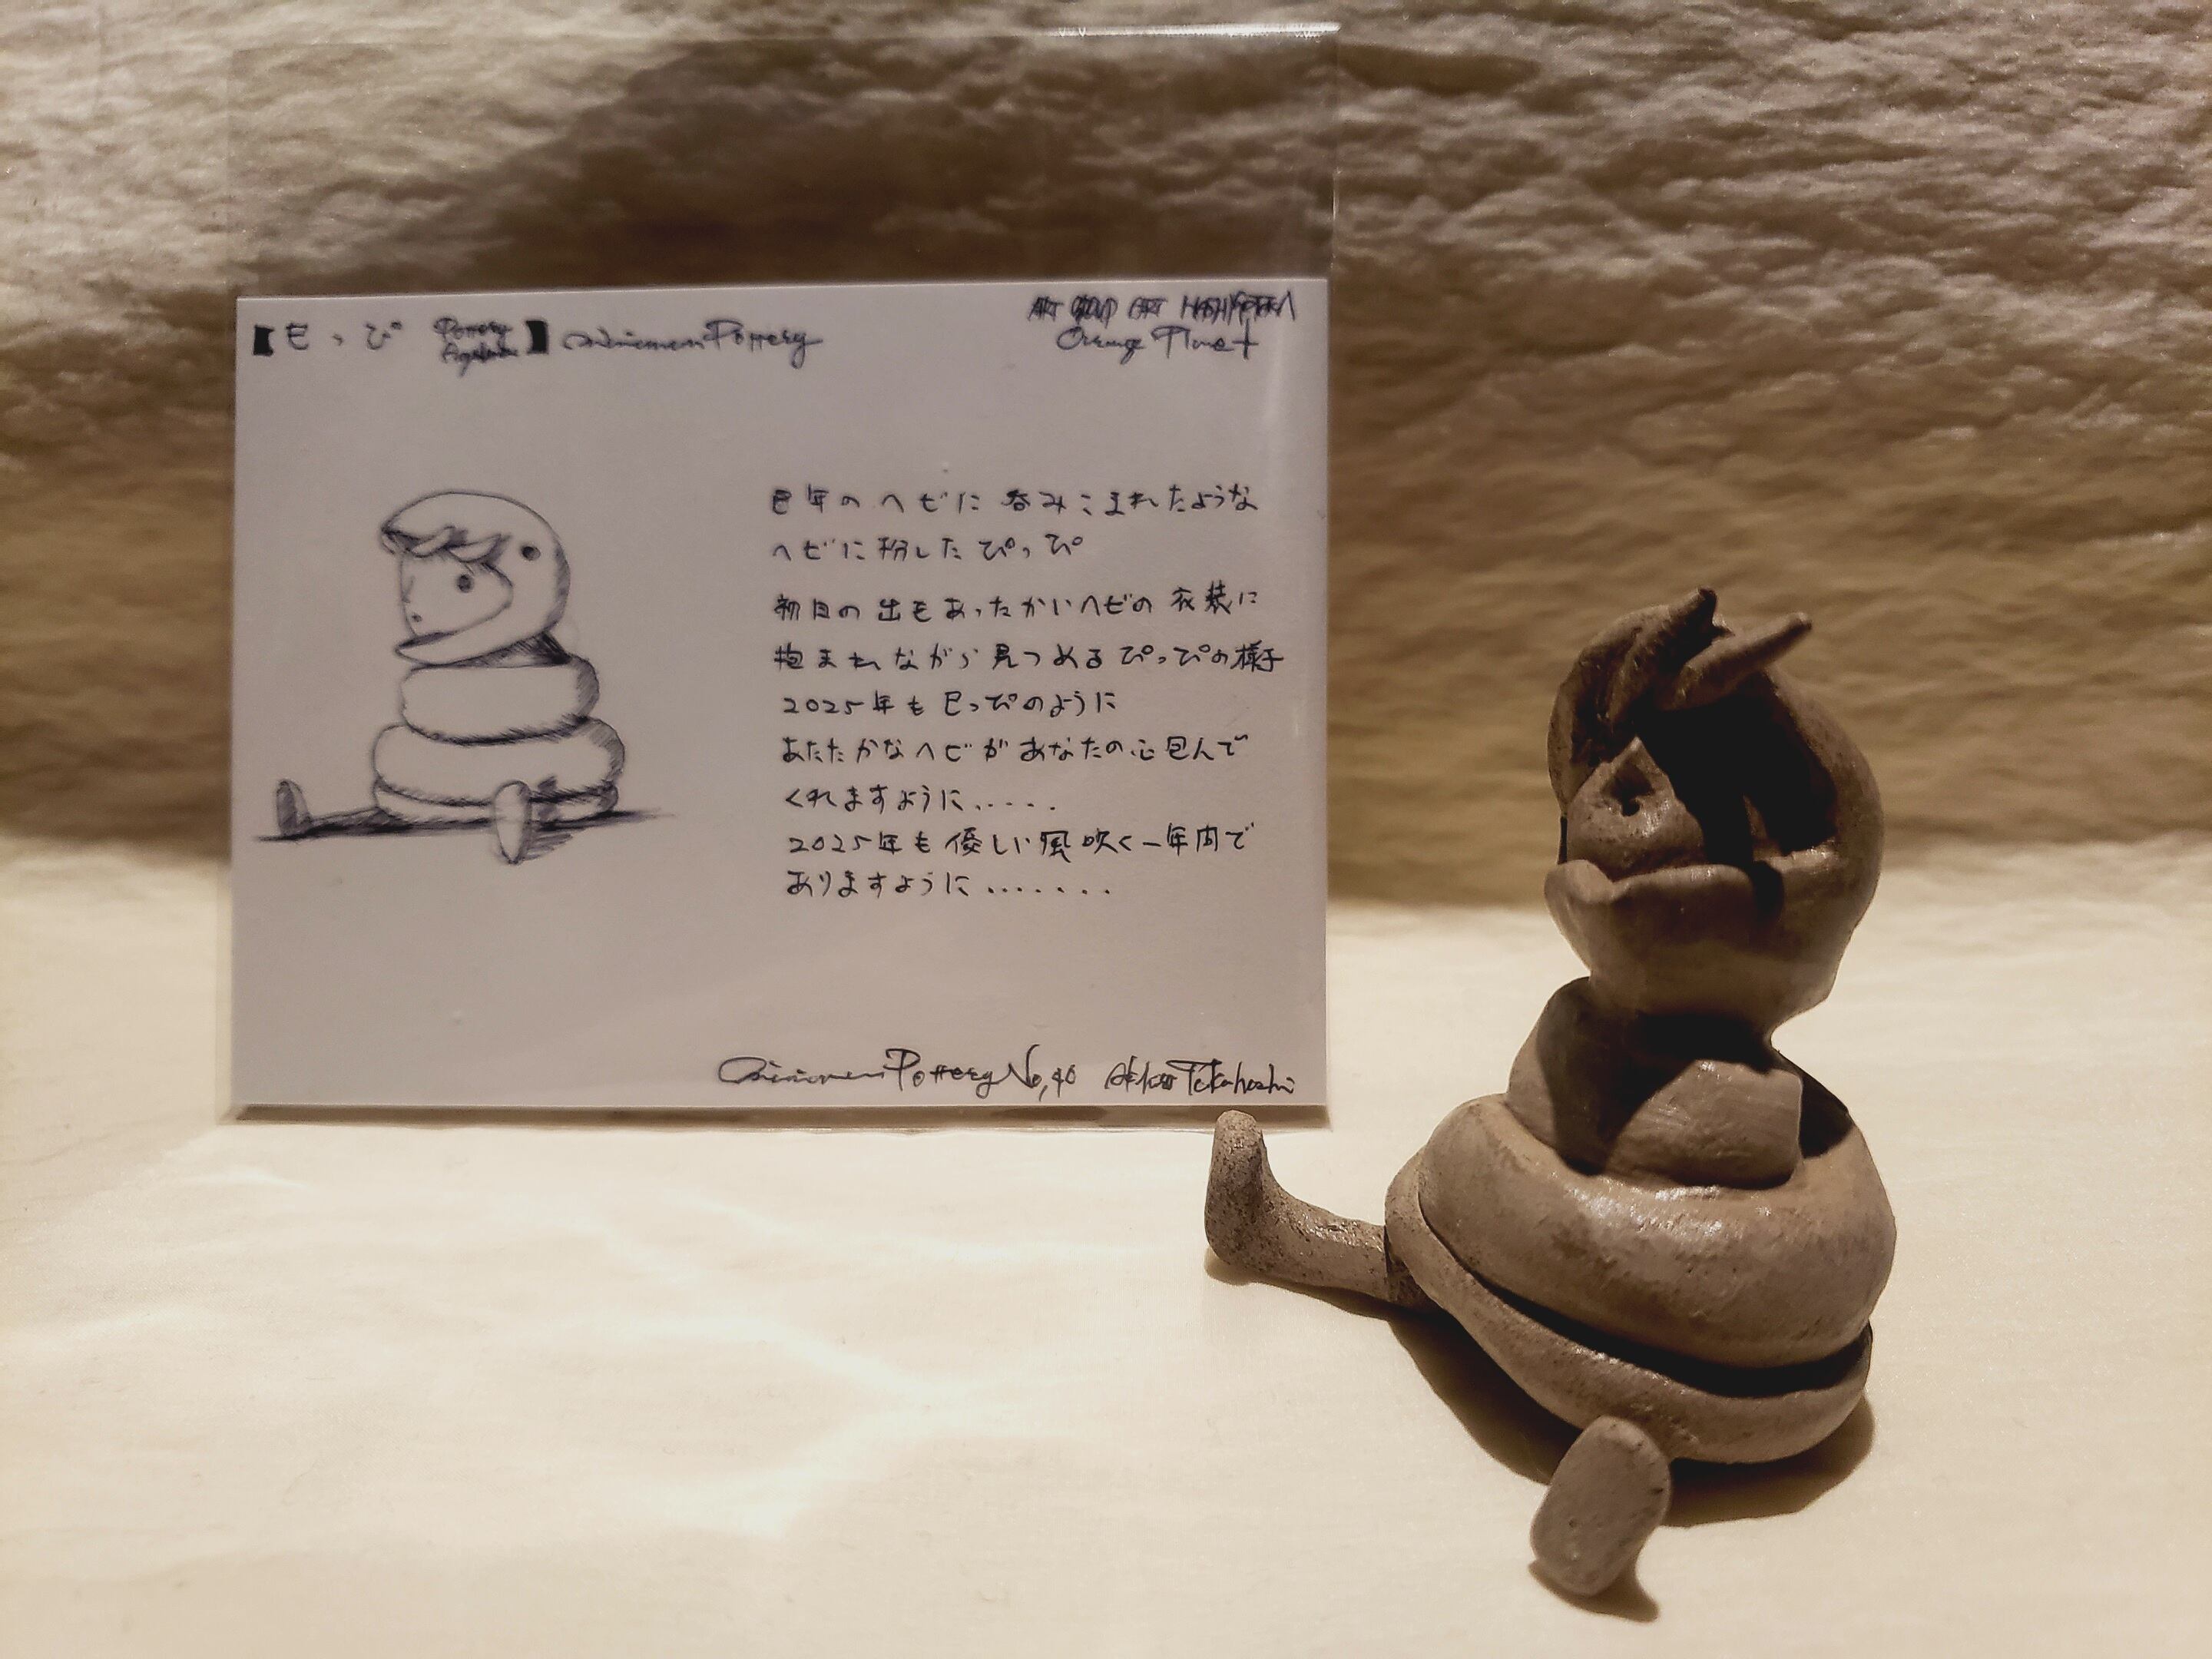 【巳っぴ Pottery】 minimeru Pottery
ART GROUP ART
Orange Planet
巳年のヘビに呑みこまれたような
ヘビに扮したぴっぴ
初日の出をあったかいヘビの衣装に
抱まれながら見つめるぴっぴの様子
2025年も巳っぴのように
あたたかなヘビがあなたの心包んで
くれますように.....
2025年も優しい風吹く一年間で
ありますように.......
Pottery No,40 Takahashi